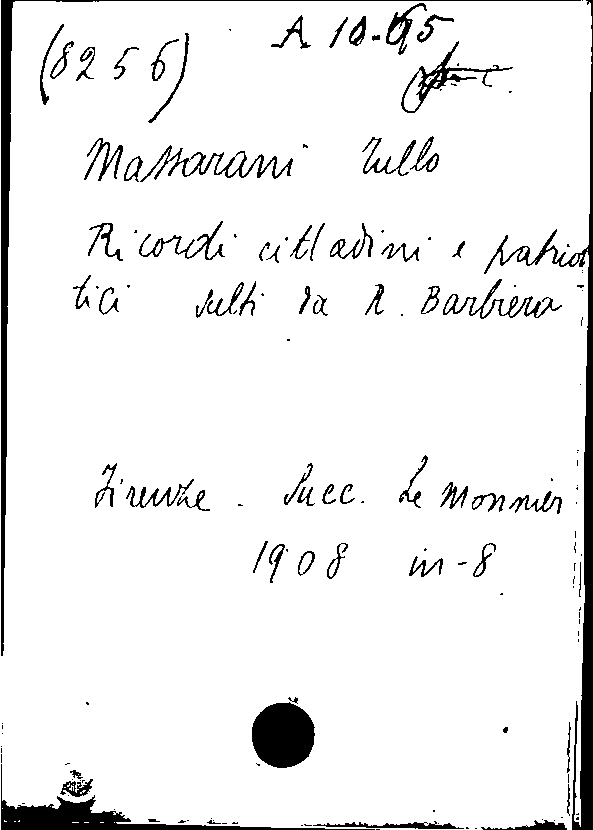 (8256) A 10-65
Massarani Tullo
Ricordi cittadini e patriot
tici sulti da R. Barbiera
Firenze. Succ. Le Monnier
1908 in-8